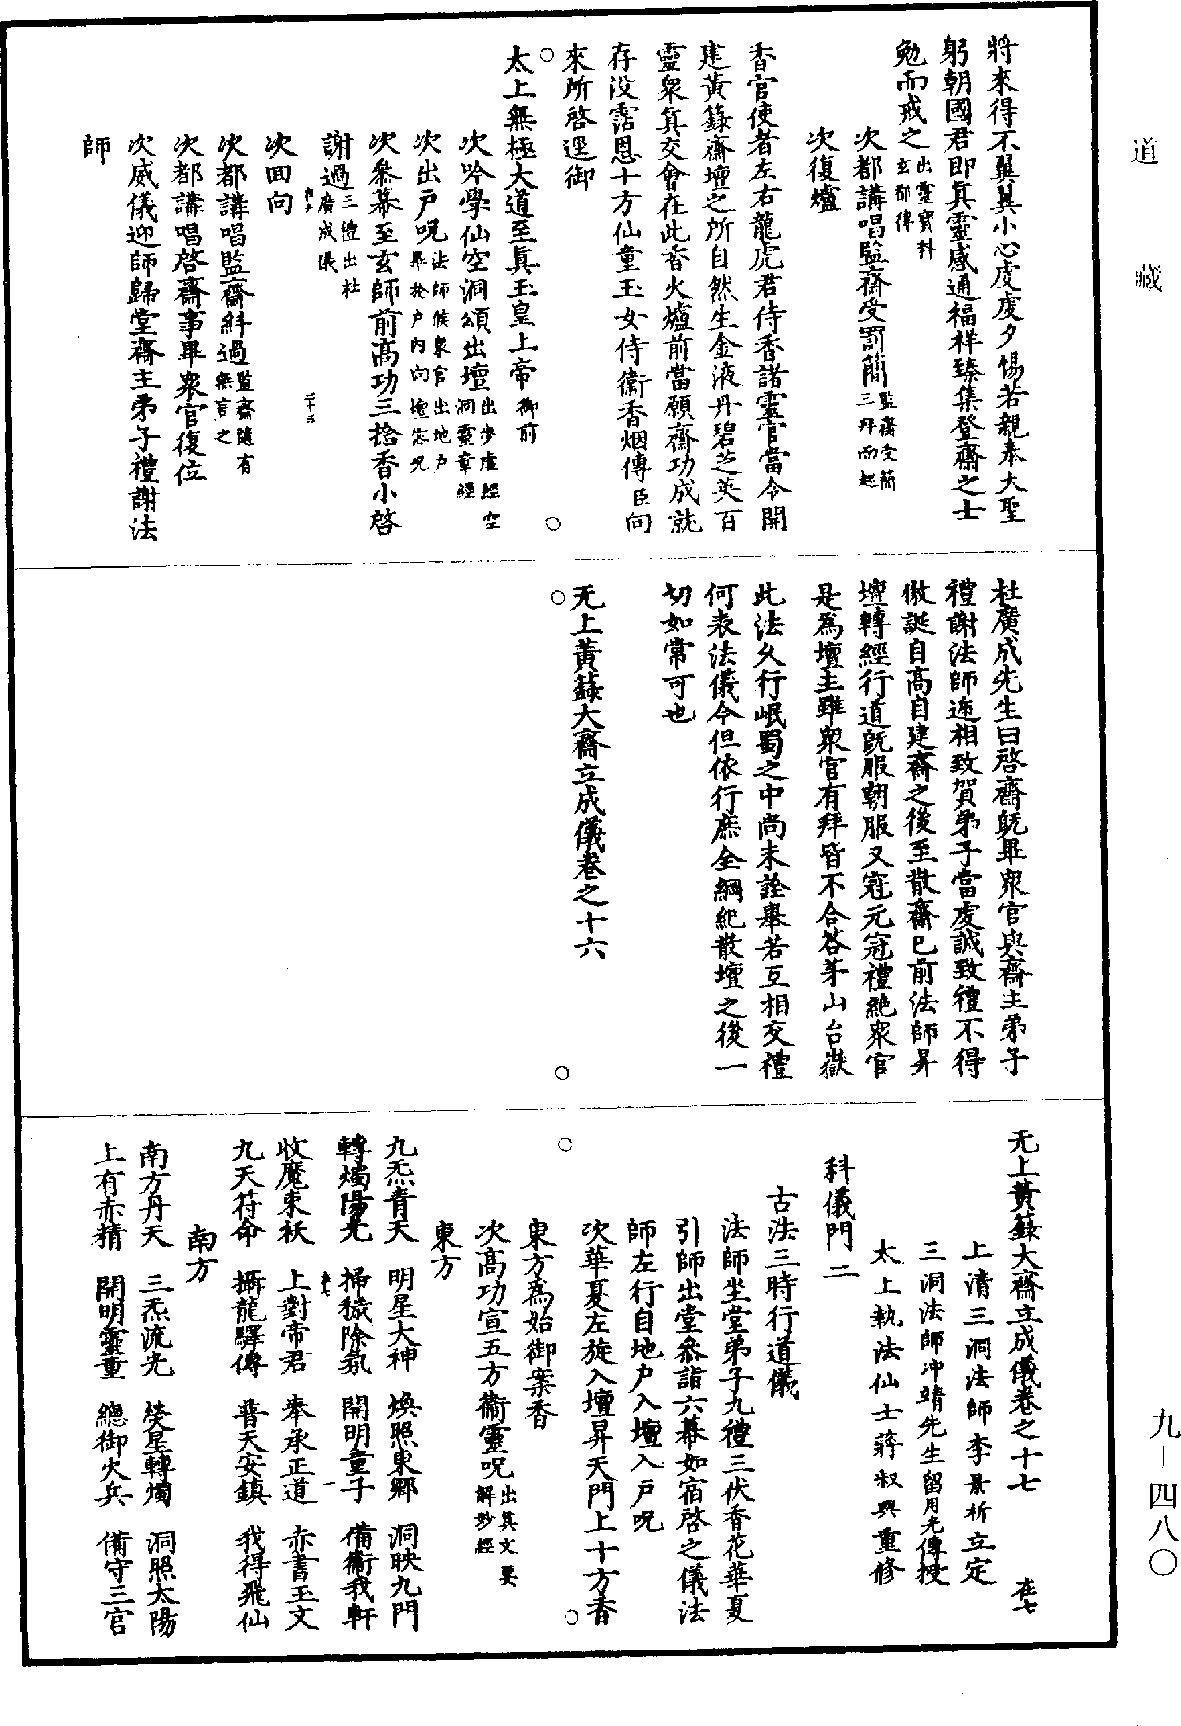 道藏
將來得不翼翼小心虔虔夕惕若親奉大聖
躬朝國君即真靈感通福祥臻集登齋之士
勉而戒之出靈寶科玄都傳
次都講唱監齋受罰簡監齋受簡三拜而起
次復爐
香官使者左右龍虎君侍香諸靈官當令開
建黃籙齋壇之所自然生金液丹碧芝英百
靈衆真交會在此香火爐前當願齋功成就
存没霑恩十方仙童玉女侍衛香烟傳臣向
來所啓逕御
太上無極大道至真玉皇上帝御前
次吟學仙空洞頌出壇出步虛經空洞靈章經
次出戶呪法師候衆官出地戶畢於戶内向壇念呪
次叅幕至玄師前高功三捻香小啓
謝過三禮出杜廣成儀
次回向
次都講唱監齋糾過監齋隨有無言之
次都講唱啓齋事畢衆官復位
次威儀迎師歸堂齋主弟子禮謝法
師
杜廣成先生曰啓齋既畢衆官與齋主弟子
禮謝法師遞相致賀弟子當虔誠致禮不得
傲誕自高自建齋之後至散齋已前法師昇
壇轉經行道既服朝服又冠元冠禮絶衆官
是為壇主雖衆官有拜皆不合荅茅山台嶽
此法久行岷蜀之中尚未詮舉若互相交禮
何表法儀今但依行庶全綱紀散壇之後一
切如常可也
无上黃籙大齋立成儀卷之十六
无上黃籙大齋立成儀卷之十七 在七
上清三洞法師李景祈立定
三洞法師冲靖先生留用光傳授
太上執法仙士蔣叔輿重修
科儀門二
古法三時行道儀
法師坐堂弟子九禮三伏香花華夏
引師出堂叅詣六幕如宿啓之儀法
師左行自地戶入壇入戶呪
次華夏左旋入壇昇天門上十方香
東方為始御案香
次高功宣五方衞靈呪出真文要解妙經
東方
九炁青天 明星大神 煥照東鄉 洞映九門
轉燭陽光 掃穢除氛 開明童子 備衞我軒
收魔束祅 上對帝君 奉承正道 赤書玉文
九天符命 攝龍驛傳 普天安鎮 我得飛仙
南方
南方丹天 三炁流光 熒星轉燭 洞照太陽
上有赤精 開明靈童 總御火兵 備守三官
九—四八〇